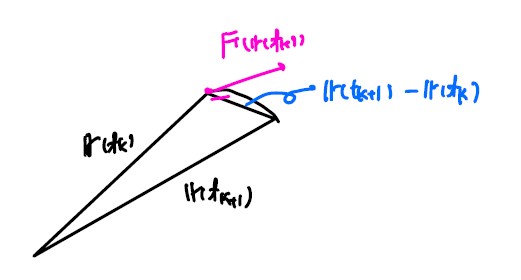 F(r(tk))
r(tk+1) - r(tk)
r(tk)
r(tk+1)